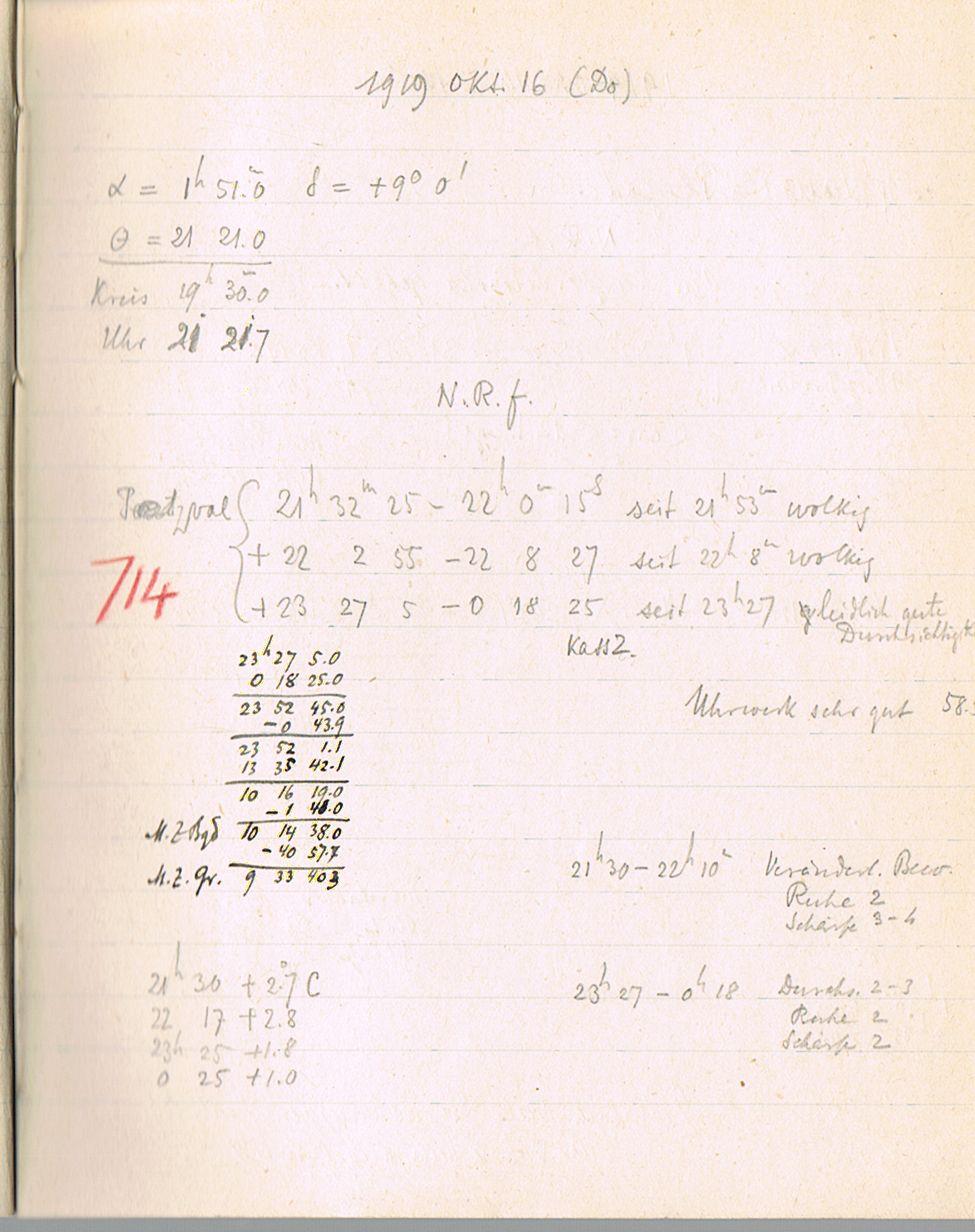 1919 Okt. 16 (Do)
α = 1ʰ 51.ᵐ0 δ = +9° 0'
θ = 21 21.0
Kreis 19ʰ 30.ᵐ0
Uhr 21 21.7
N.R.f.
Petzval { 21ʰ 32ᵐ 25 – 22ʰ 0ᵐ 15ˢ seit 21ʰ 53ᵐ wolkig
+ 22 2 55 – 22 8 27 seit 22ʰ 8ᵐ wolkig
714
+ 23 27 5 – 0 18 25 seit 23ʰ27 leidlich gute
Durchsichtigk
Kass 2.
23ʰ 27 5.0
0 18 25.0
23 52 45.0
– 0 43.9
23 52 1.1
13 35 42.1
10 16 19.0
– 1 41.0
M.Z. Bgd 10 14 38.0
– 40 57.7
M.Z. Gr. 9 33 40.3
Uhrwerk sehr gut 58.
21ʰ30 – 22ʰ 10ᵐ Veränderl. Bew.
Ruhe 2
Schärfe 3–4
21ʰ 30 + 2.°7 C
22 17 + 2.8
23ʰ 25 +1.8
0 25 +1.0
23ʰ 27 – 0ʰ 18 Durchs. 2–3
Ruhe 2
Schärfe 2